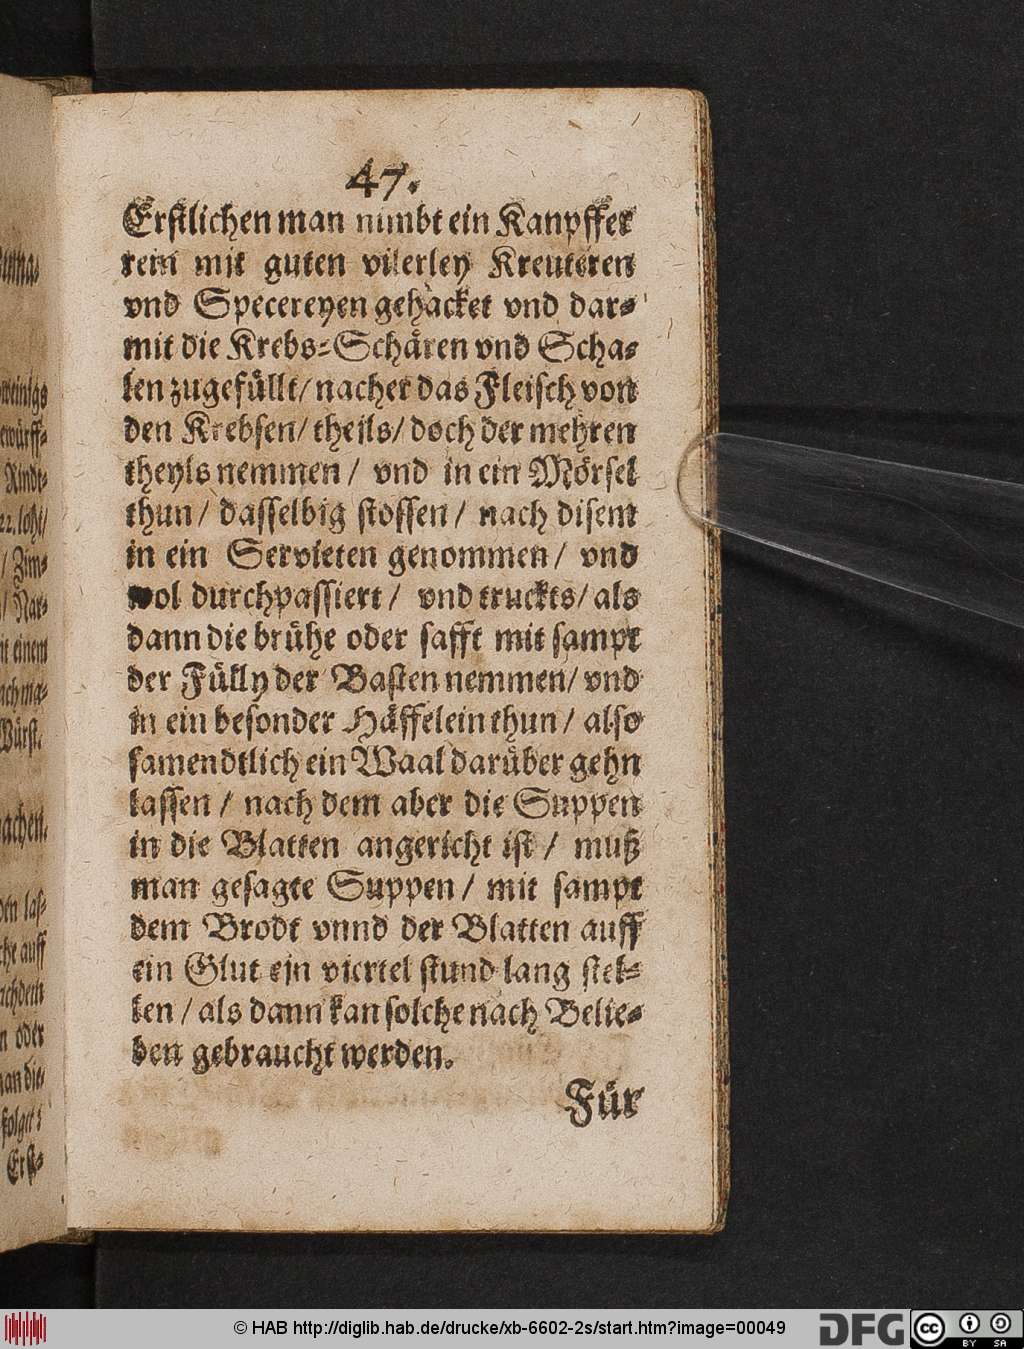 47.
Erstlichen man nimbt ein Kanpffer
rein mit guten vilerley Kreuteren
vnd Specereyen gehacket vnd dar⸗
mit die Krebs⸗Schären vnd Scha⸗
len zugefüllt/ nacher das Fleisch von
den Krebsen/ theils/ doch der mehren
theyls nemmen / vnd in ein Mörsel
thun / dasselbig stossen / nach disem
in ein Servieten genommen / vnd
wol durchpassiert / vnd truckts/ als
dann die brühe oder safft mit sampt
der Fülly der Basten nemmen/ vnd
in ein besonder Häffelein thun / also
samendtlich ein Waal darüber gehn
lassen / nach dem aber die Suppen
in die Blatten angericht ist / muß
man gesagte Suppen / mit sampt
dem Brodt vnnd der Blatten auff
ein Glut ein viertel stund lang stel⸗
len / als dann kan solche nach Belie⸗
ben gebraucht werden.
Für
weinigs
ewürff⸗
Rindt⸗
22. loht/
/ Zim⸗
/ Nar⸗
it einem
ach ma⸗
Würst.
achen.
den las⸗
che auff
achdem
n oder
man die⸗
folget:
Erst⸗
© HAB http://diglib.hab.de/drucke/xb-6602-2s/start.htm?image=00049
DFG
cc
BY SA